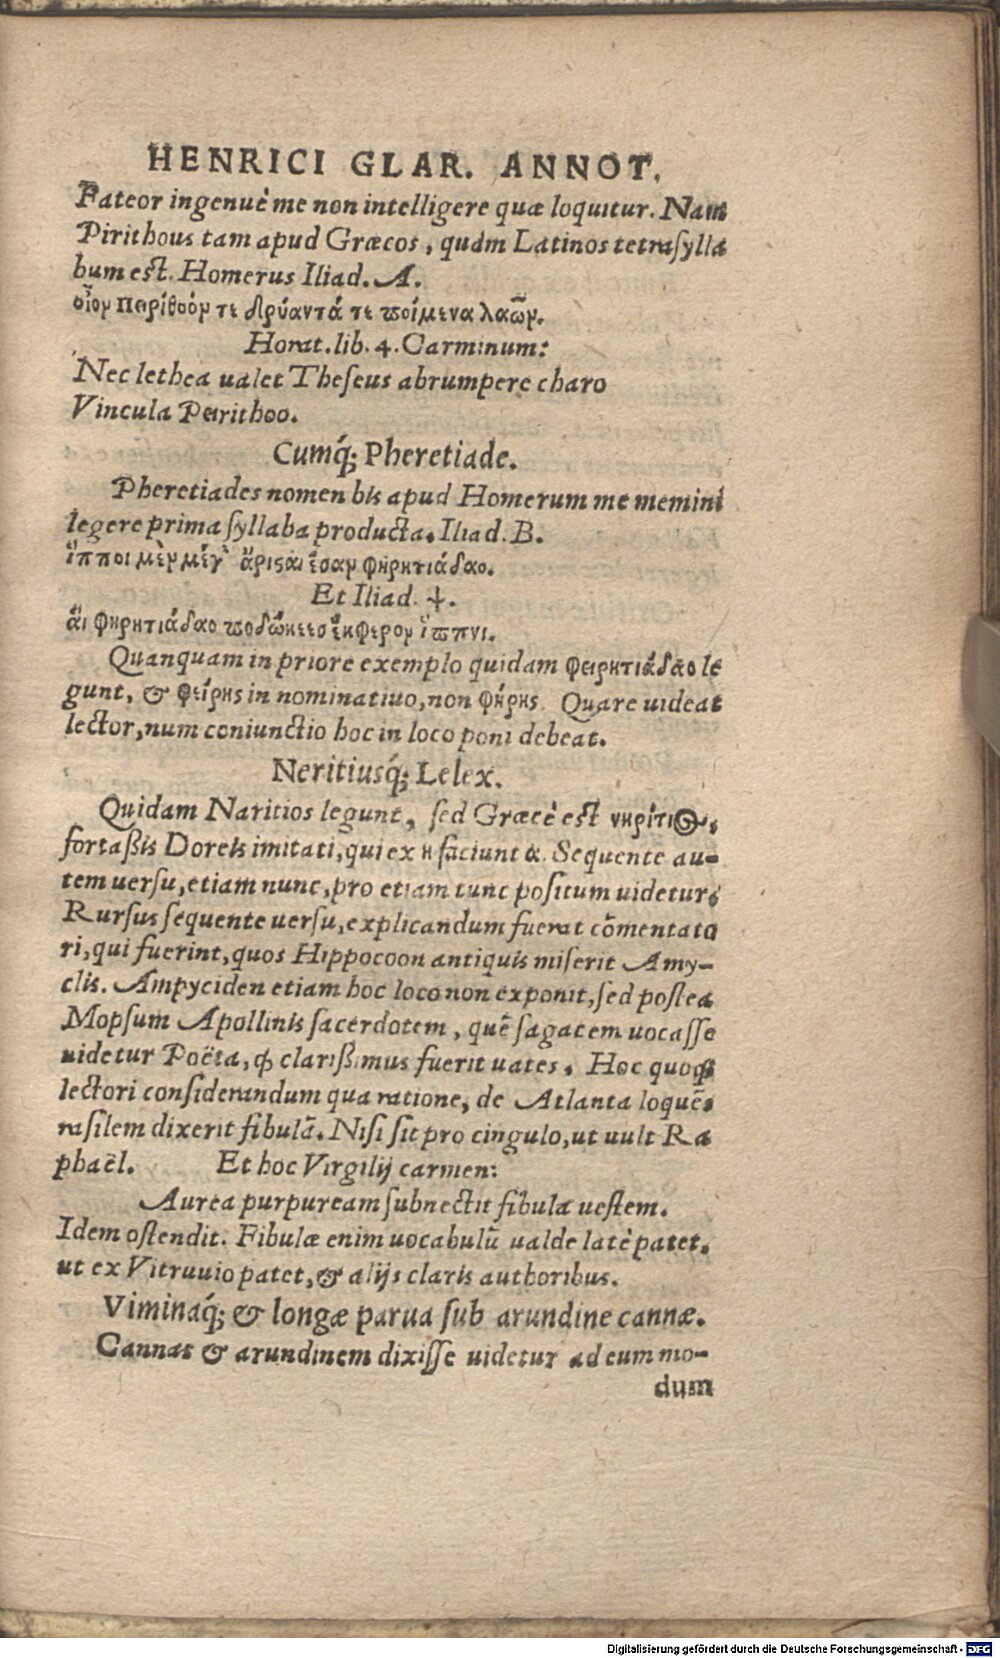 HENRICI GLAR. ANNOT.
Fateor ingenuè me non intelligere quæ loquitur. Nam
Pirithous tam apud Græcos, quàm Latinos tetrasylla
bum est. Homerus Iliad. A.
οἷον πειρίθοόν τε δρύαντά τε ποίμενα λαῶν.
Horat. lib. 4. Carminum:
Nec lethea ualet Theseus abrumpere charo
Vincula Peirithoo.
Cumq́; Pheretiade.
Pheretiades nomen bis apud Homerum me memini
legere prima syllaba producta. Iliad. B.
ἵπποι μὲν μέγ' ἄριςαι ἔσαν φηρητιάδαο.
Et Iliad. ψ.
ἁι φηρητιάδαο ποδώκεεσ ἔκφερον ἵπποι.
Quanquam in priore exemplo quidam φειρητιάδαο le
gunt, & φείρης in nominatiuo, non φήρης. Quare uideat
lector, num coniunctio hoc in loco poni debeat.
Neritiusq́; Lelex.
Quidam Naritios legunt, sed Græcè est νηρίτιος,
fortaßis Doreis imitati, qui ex η faciunt α. Sequente au-
tem uersu, etiam nunc, pro etiam tunc positum uidetur.
Rursus sequente uersu, explicandum fuerat cōmentato
ri, qui fuerint, quos Hippocoon antiquis miserit Amy-
clis. Ampyciden etiam hoc loco non exponit, sed postea
Mopsum Apollinis sacerdotem, quē sagacem uocasse
uidetur Poëta, ꝙ clarißimus fuerit uates. Hoc quoq;
lectori considerandum qua ratione, de Atlanta loquēs
rasilem dixerit fibulā. Nisi sit pro cingulo, ut uult Ra
phaël. Et hoc Virgilij carmen:
Aurea purpuream subnectit fibula uestem.
Idem ostendit. Fibulæ enim uocabulū ualde latè patet,
ut ex Vitruuio patet, & alijs claris authoribus.
Viminaq́; & longæ parua sub arundine cannæ.
Cannas & arundinem dixisse uidetur ad eum mo-
dum
Digitalisierung gefördert durch die Deutsche Forschungsgemeinschaft - DFG